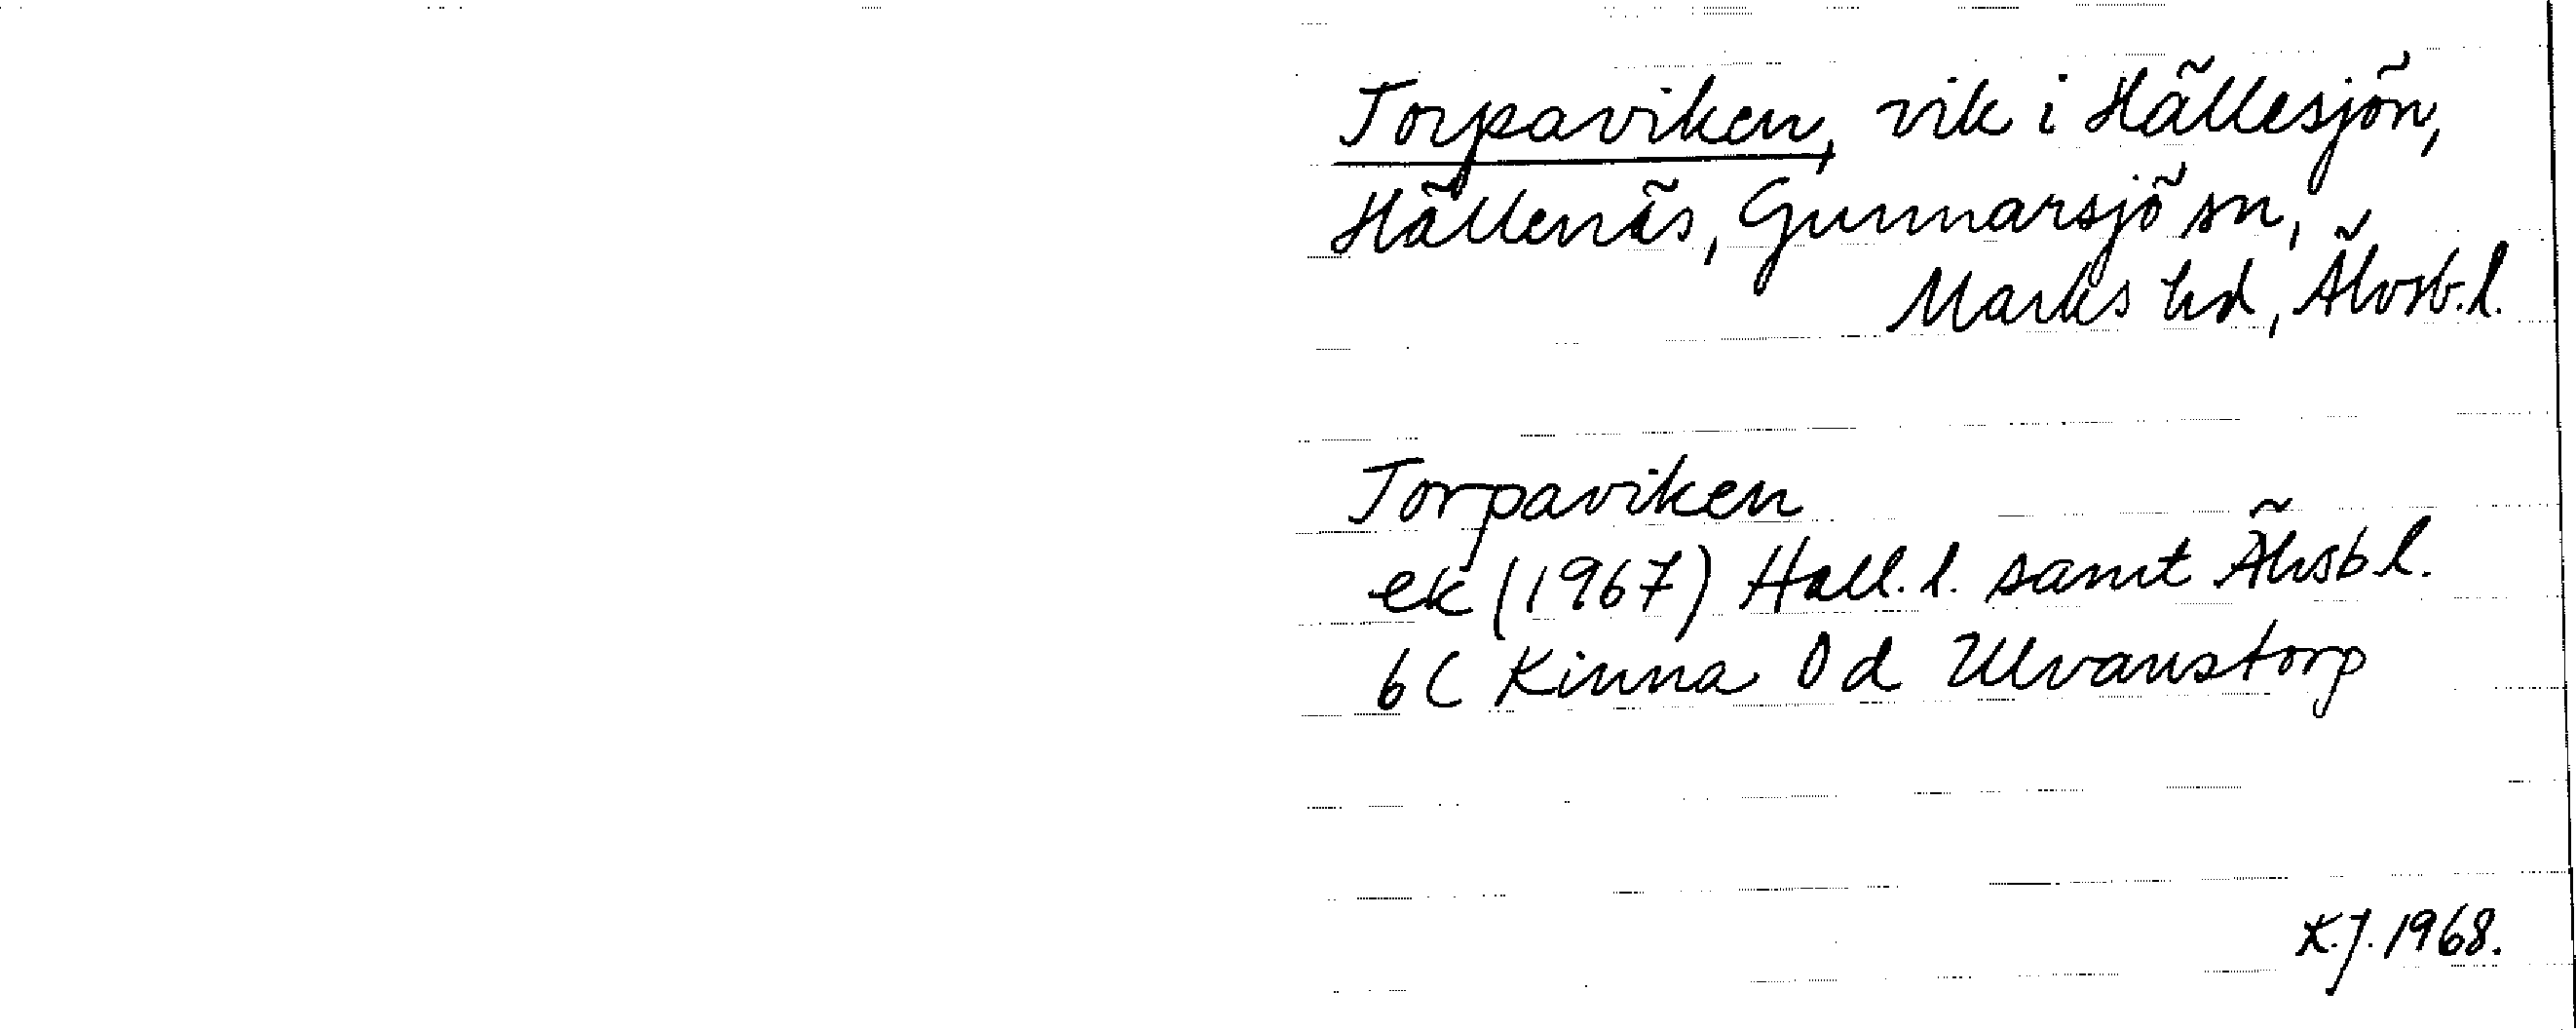 Torpaviken, vik i Hällesjön,
Hällenäs, Gunnarsjö sn,
Marks hd, Älvsb.l.
Torpaviken
ek (1967) Hall. l. samt Älvsb l.
6C Kinna 0d Ulvanstorp
K.J. 1968.